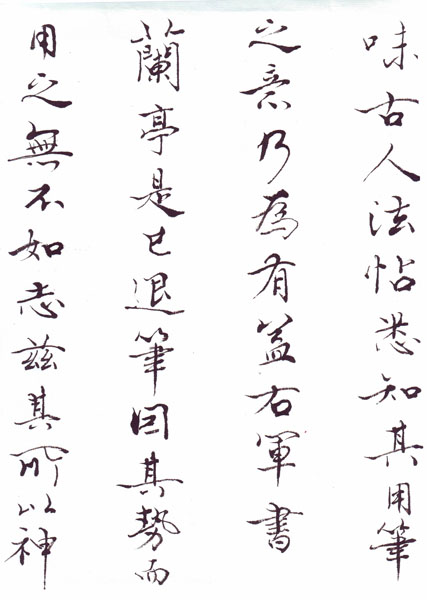 味古人法帖悉知其用筆
之意乃為有益右軍書
蘭亭是已退筆因其勢而
用之無不如志茲其所以神